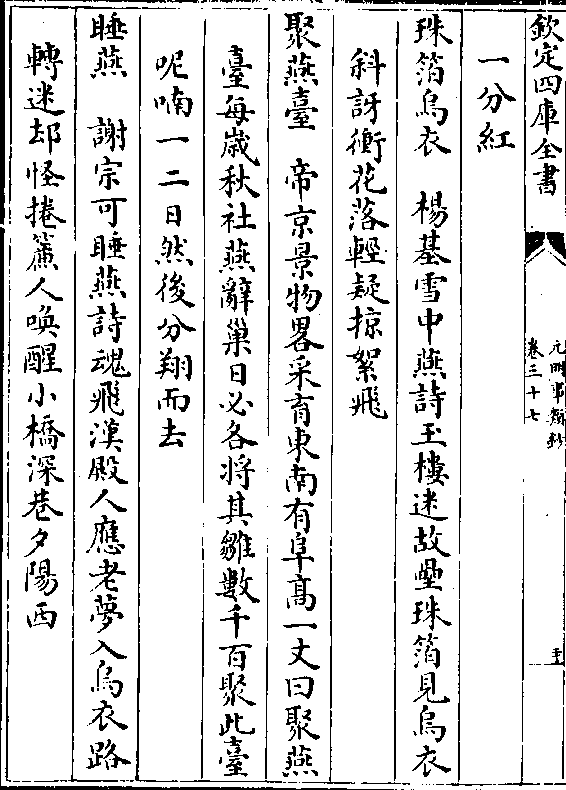 欽定四庫全書
元明事類鈔
卷三十七
一分紅
珠箔烏衣 楊基雪中燕詩玉樓迷故壘珠箔見烏衣
斜訝衝花落輕疑掠絮飛
聚燕臺 帝京景物畧采育東南有阜高一丈曰聚燕
臺每歲秋社燕辭巢日必各將其雛數千百聚此臺
呢喃一二日然後分翔而去
睡燕 謝宗可睡燕詩魂飛漢殿人應老夢入烏衣路
轉迷却怪捲簾人喚醒小橋深巷夕陽西